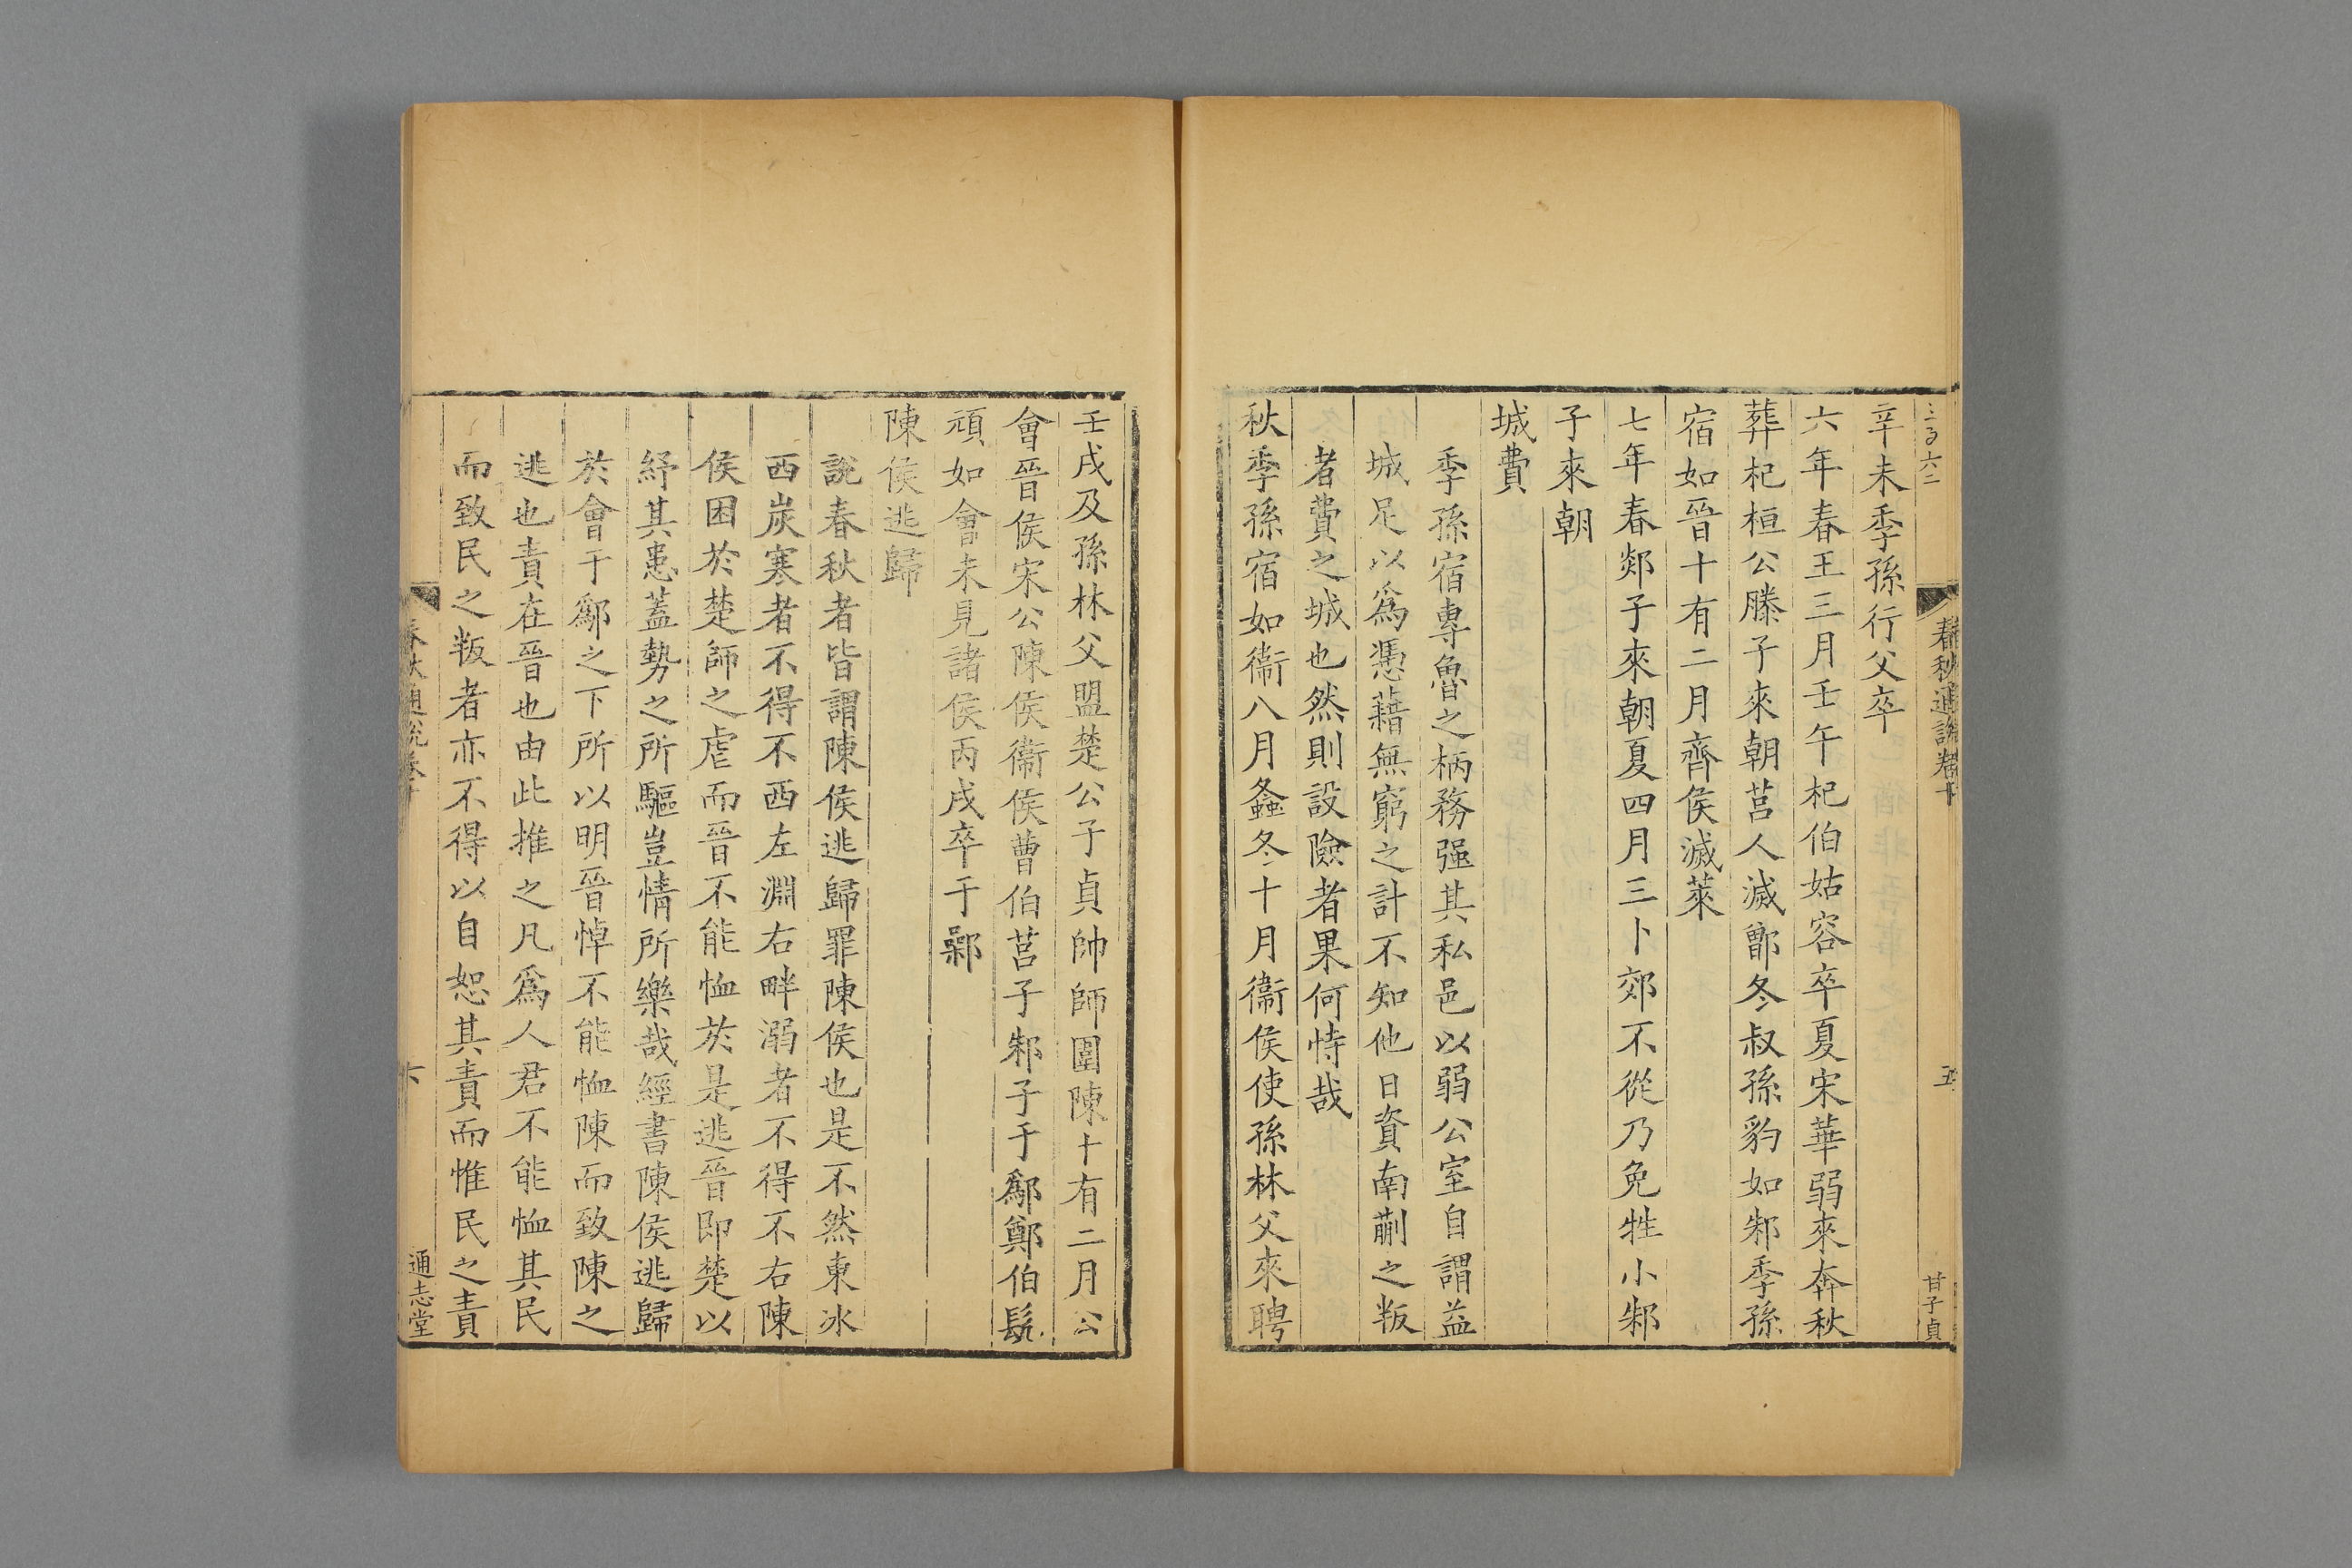 春秋通說卷十
五
甘子貞
辛未季孫行父卒
六年春王三月壬午杞伯姑容卒夏宋華弱來奔秋
葬杞桓公滕子來朝莒人滅鄫冬叔孫豹如邾季孫
宿如晉十有二月齊侯滅萊
七年春郯子來朝夏四月三卜郊不從乃免牲小邾
子來朝
城費
季孫宿專魯之柄務强其私邑以弱公室自謂益
城足以爲憑藉無窮之計不知他日資南蒯之叛
者費之城也然則設險者果何恃哉
秋季孫宿如衞八月螽冬十月衞侯使孫林父來聘
壬戌及孫林父盟楚公子貞帥師圍陳十有二月公
會晉侯宋公陳侯衞侯曹伯莒子邾子于鄬鄭伯髡
頑如會未見諸侯丙戌卒于鄵
陳侯逃歸
說春秋者皆謂陳侯逃歸罪陳侯也是不然東冰
西炭寒者不得不西左淵右畔溺者不得不右陳
侯困於楚師之虐而晉不能恤於是逃晉即楚以
紓其患蓋勢之所驅豈情所樂哉經書陳侯逃歸
於會于鄬之下所以明晉悼不能恤陳而致陳之
逃也責在晉也由此推之凡爲人君不能恤其民
而致民之叛者亦不得以自恕其責而惟民之責
春秋通說卷十
六
通志堂